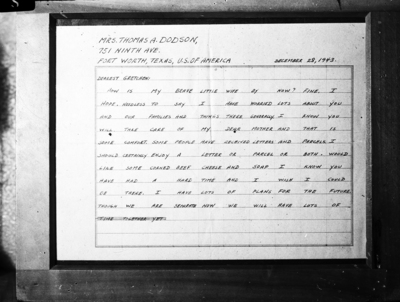 MRS. THOMAS A. DODSON,
751 NINTH AVE.
FORT WORTH, TEXAS, U.S. OF AMERICA DECEMBER 28, 1942.
DEAREST GRETCHEN:
HOW IS MY BRAVE LITTLE WIFE BY NOW? FINE, I
HOPE. NEEDLESS TO SAY I HAVE WORRIED LOTS ABOUT YOU
AND OUR FAMILIES AND THINGS THERE GENERALLY. I KNOW YOU
WILL TAKE CARE OF MY DEAR MOTHER AND THAT IS
SOME COMFORT. SOME PEOPLE HAVE RECEIVED LETTERS AND PARCELS. I
SHOULD CERTAINLY ENJOY A LETTER OR PARCEL OR BOTH. WOULD
LIKE SOME CORNED BEEF CHEESE AND SOAP. I KNOW YOU
HAVE HAD A HARD TIME AND I WISH I COULD
BE THERE. I HAVE LOTS OF PLANS FOR THE FUTURE
THOUGH WE ARE SEPARATE NOW WE WILL HAVE LOTS OF
TIME TOGETHER YET.